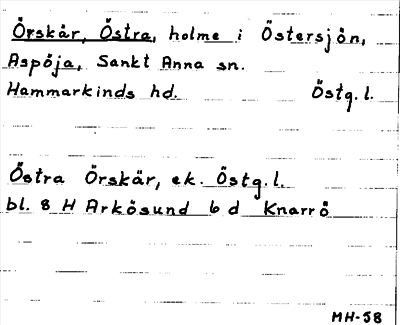 Örskär, Östra, holme i Östersjön,
Aspöja, Sankt Anna sn.
Hammarkinds hd. Östg. l.
Östra Örskär, ek. Östg. l.
bl. 8 H Arkösund 6 d Knarrö
MH-58